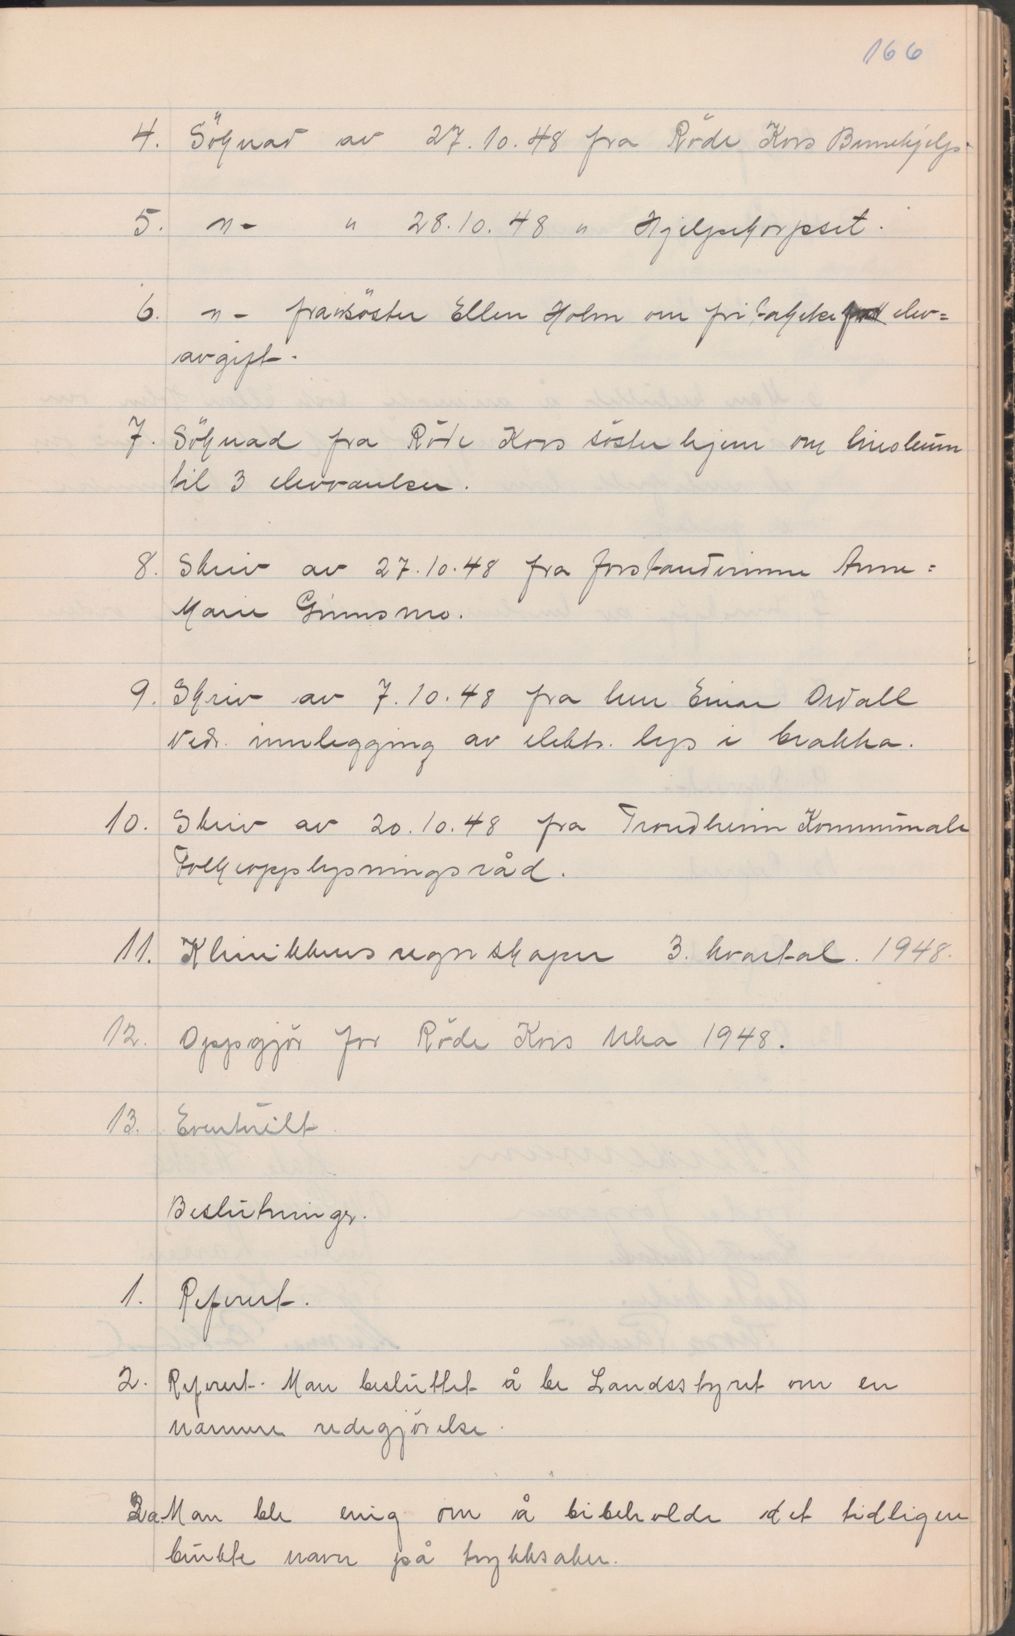 166
4. Söknad av 27.10.48 fra Röde Kors Barnehjelp.
5. "- " 28.10.48 " Hjelpekorpset.
6. "- fra söster Ellen Holm om fritakelse elev=
avgift.
7. Söknad fra Röde Kors søsterhjem om linoleum
til 3 elevværelser.
8. Skriv av 27.10.48 fra forstanderinne Anne=
Marie Grimsmo.
9. Skriv av 7.10.48 fra herr Einar Ordall
vedr. innlegging av elektr. lys i brakka.
10. Skriv av 20.10.48 fra Trondheim Kommunale
Folkeopplysningsråd.
11. Klinikkens regnskaper 3. kvartal. 1948.
12. Oppgjör for Röde Kors Uka 1948.
13. Eventuilt
Beslutninger.
1. Referert.
2. Referert. Man besluttet å be Landsstyret om en
nærmere redegjörelse.
2a Man ble enig om å bibeholde det tidligere
brukte navn på trykksaker.